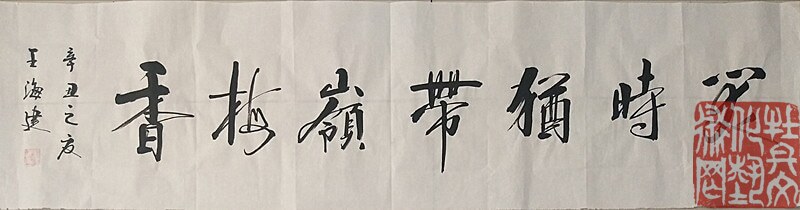 笑時猶帶嶺梅香
辛丑之夏
王海建